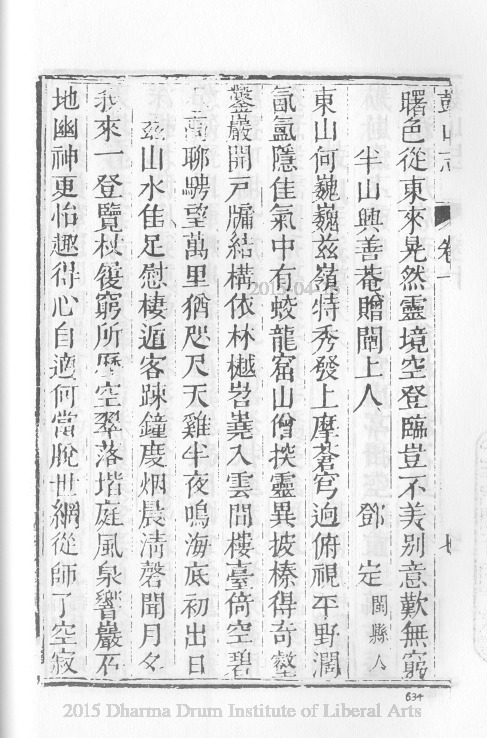 鼓山志 卷十 七
曙色從東來晃然靈境空登臨豈不美別意歎無窮
半山興善菴贈闇上人 鄧 定 閩縣人
東山何巍巍茲嶺特秀發上摩蒼穹迥俯視平野濶
氤氳隱佳氣中有蛟龍窟山僧探靈異披榛得奇壑
鑿巖開戸牖結構依林樾岧嶤入雲間樓臺倚空碧
憑聊騁望萬里猶咫尺天雞半夜鳴海底初出日
玆山水佳足慰棲遁客踈鐘度烟晨清磬聞月夕
我來一登覽杖履窮所歷空翠落堦庭風泉響巖石
地幽神更怡趣得心自適何當脫世網從師了空寂
634
2015 Dharma Drum Institute of Liberal Arts